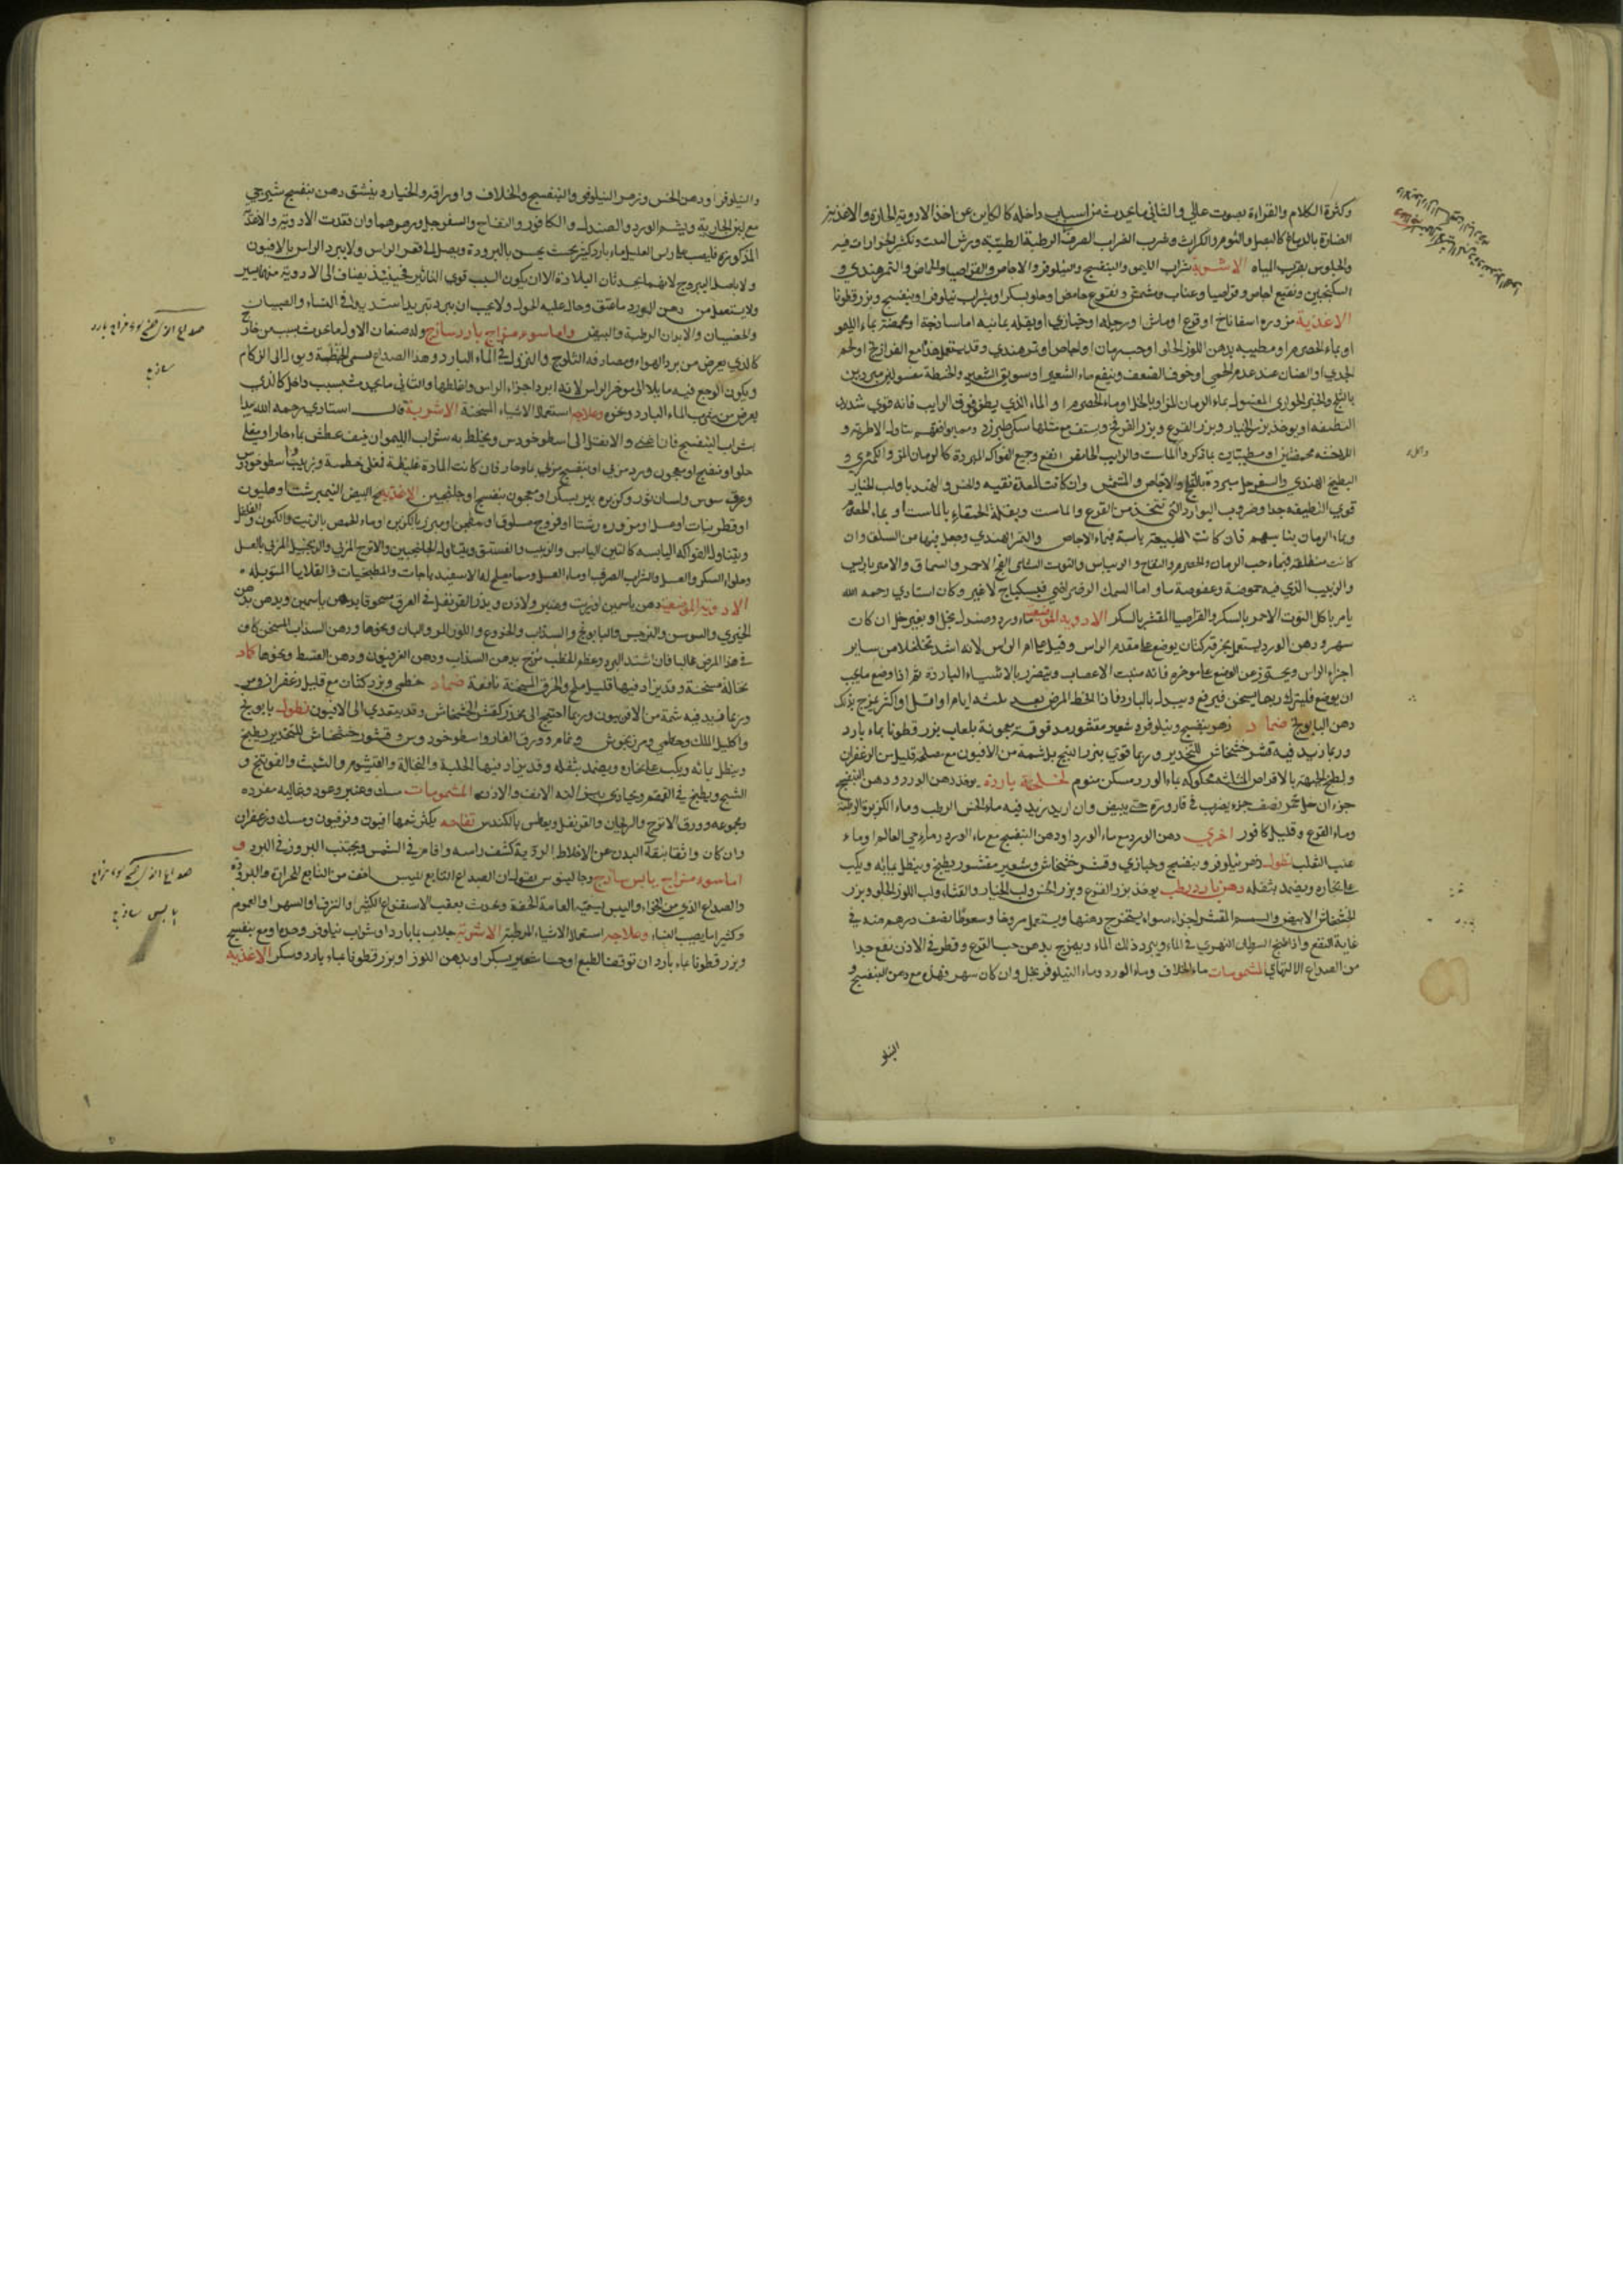 وكثرة الكلام والقراءة بصوت عالي والثاني ما يحدث من اسباب داخله كالكاين عن اخذ الادوية الحارة والاغذية
الضارة بالدماغ كالبصل والثوم والكراث وشرب الشراب الصرف الرطبة الطيبة ورش البيت وتكثير الخرارات فيه
والجلوس بقرب المياه الاشربة شراب الليمو والبنفسج والنيلوفر والاجاص والقراصيا والحماض والتمر هندي و
السكنجبين ونقيع اجاص وقراصيا وعناب ومشمش وبزر قطونا
الاغذية مزوره اسفاناخ او قرع او ماش او رجله او خبازي او بقله يمانيه اما ساذجة او محمضة بماء الليمو
او بماء الحصرم او مطيبه بدهن اللوز الحلو او حب رمان او اجاص او تمر هندي وقد يستعمل هذا مع الفراريج او لحم
الجدي او الضان عند عدم الحمى او خوف الضعف وينفع ماء الشعير او سويق الشعير والحنطة مغسولين مبردين
بالثلج والخبز الحواري المغسول بماء الرمان المز او بالخل او ماء الحصرم او الماء الذي يطفو فوق الرايب فانه قوي شديد
التطفيه او يوخذ بزر الخيار وبزر القرع وبزر الفرفخ ويستف مع مثلها سكر طبرزد
البطيخ الهندي والسفرجل مبردة بالثلج والاجاص والمشمش وان كانت المعدة نقيه والخس والهندبا ولب الخيار
قوي التطفيه جدا وضروب البوارد التي تتخذ من القرع والماست وبقلة الحمقاء بالماست او بماء الحصرم
وبماء الرمان فان كانت الطبيعة يابسة فبماء الاجاص والتمر الهندي وجعل فيها من السلق وان
كانت منطلقة فبماء حب الرمان والحصرم والتفاح والريباس والتوت الشامي الفج الاحمر والسماق والامبرباريس
والزبيب الذي فيه حموضة وعفوصة ساو اما السمك الرضراضي فبسكباج لا غير وكان استاذي رحمه الله
يامر باكل التوت الاحمر بالسكر والقراصيا المقشر بالسكر الادوية الموضعية ماء ورد وصندل بخل او بغير خل ان كان
سهر ودهن الورد يستعمل بخرقة كتان يوضع على مقدم الراس وقيل على ام الراس لانه اشد تخلخلا من ساير
اجزاء الراس ويحترز عن الوضع على موخره فانه منبت الاعصاب ويتضرر بالاشياء الباردة ثم اذا وضع ما يجب
ان يوضع فليترك ريثما يسخن فيرفع ويبدل بالبارد فاذا انحط المرض بعد ثلثه ايام او اقل او اكثر يمزج بذلك
دهن البابونج ضماد زهر بنفسج ونيلوفر وشعير مقشور مدقوقة معجونة بلعاب بزر قطونا بماء بارد
وربما زيد فيه قشر خشخاش للتخدير وربما قوي ببزر البنج بل شمة من الافيون مع مصلحه قليل من الزعفران
ولطخ الجبهة بالاقراص المثلثه محكوكه بماء الورد مسكن منوم لخلخة باردة يوخذ دهن الورد ودهن البنفسج
جزء ان خل خمر نصف جزء يضرب في قارورة حتى يبيض وان اريد زيد فيه ماء الخس الرطب وماء الكزبرة الرطبة
وماء القرع وقليل كافور اخرى دهن الورد مع ماء الورد او دهن البنفسج مع ماء الورد وماء حي العالم او ماء
عنب الثعلب نطول زهر نيلوفر وبنفسج وخبازي وقشر خشخاش وشعير مقشور يطبخ وينطل بمائه ويكب
على بخاره ويضمد بثفله دهن بارد رطب يوخذ بزر القرع وبزر الخس ولب الخيار والقثاء ولب اللوز الحلو وبزر
الخشخاش الابيض والسمسم المقشر اجزاء سواء يستخرج دهنها ويستعمل مروخا وسعوطا نصف درهم منه في
غاية النفع واذا طبخ السرطان النهري في الماء ويبرد ذلك الماء ويمزج بدهن حب القرع وقطر في الاذن نفع جدا
من الصداع الالتهابي المشمومات ماء الخلاف وماء الورد وماء النيلوفر بخل وان كان سهر فهل مع دهن البنفسج و
النيلو
والنيلوفر او دهن الخس وزهر النيلوفر والبنفسج والخلاف واوراقه والخيار وينشق دهن بنفسج شيرجي
مع لبن الجارية ويشم الورد والصندل والكافور والتفاح والسفرجل وزهرهما وان فقدت الادوية والاغذية
المذكوره فليصب على راس العليل ماء بارد كثير بحيث يحس بالبرودة ويصل الى قعر الراس ولا يبرد الراس بالافيون
ولا باصل اليبروج لانهما يحدثان البلادة الا ان يكون السبب قوي التاثير فحينئذ يضاف الى الادوية منهما يسير
ولا يستعمل من دهن الورد ما عتق وحال عليه الحول ولا يجب ان يبرد تبريدا شديدا في الشتاء والصبيان
والخصيان والابدان الرطبة والبيض واما سوء مزاج بارد ساذج وله صنفان الاول ما يحدث بسبب من خارج
كالذي يعرض من برد الهواء ومصادفة الثلوج والنزول في الماء البارد
ويكون الوجع فيه مايلا الى موخر الراس لانه ابرد اجزاء الراس واغلظها والثاني ما يحدث بسبب داخل كالذي
يعرض من شرب الماء البارد ونحوه وعلاجه استعمال الاشياء المسخنة الاشربة قال استاذي رحمه الله يبدا
بشراب البنفسج فان انجح والا انتقل الى اسطوخودس ويخلط به شراب الليمو ان خيف عطش بماء حار او مغلي
حلو او بنفسج او معجون ورد مربى او بنفسج مربى بماء حار فان كانت المادة غليظة فمغلي خطمية وزبيب واسطوخودس
وعرق سوس ولسان ثور وكزبره بير بسكر او معجون بنفسج او جلنجبين الاغذية مح البيض النيمبرشت او هليون
او قطر نبات او عسل او مزوره رشتا او فروج مسلوق او مطجن او مبزر بالكزبره او ماء الحمص بالزيت والكمون والفلفل
ويتناول الفواكه اليابسه كالتين اليابس والزبيب والفستق ويتناول الجلنجبين والاترج المربى والزنجبيل المربى بالعسل
وحلواء السكر والعسل والشراب الصرف او ماء العسل ومما يصلح له الاسفيدباجات والمطجنات والقلايا المتوبله
الادوية الموضعية دهن ياسمين او زيت وعنبر ولاذن ويذر القرنفل في الفرق مسحوقا بدهن ياسمين ويدهن بدهن
الخيري والسوسن والنرجس والبابونج والسذاب والخروع واللوز المر والبان ونحوها ودهن السذاب المسخن كاف
في هذا المرض غالبا فان اشتد البرد وعظم الخطب مزج بدهن السذاب ودهن الفرفيون ودهن القسط ونحوها كماد
نخالة مسخنة وقد يزاد فيها قليل ملح والخرق المسخنة نافعة ضماد خطمي وبزر كتان مع قليل زعفران ومر
وربما زيد فيه شمة من الافربيون وربما احتيج الى مخدر كقشر الخشخاش وقد يتعدى الى الافيون نطول بابونج
واكليل الملك وخطمي ومرزنجوش ونمام وورق الغار واسطوخودوس وقشور خشخاش للتخدير يطبخ
وينطل بمائه ويكب على بخاره ويضمد بثفله وقد يزاد فيها الحلبة والنخالة والقيشوم والشبث والفوتنج و
الشيح ويطبخ في القمقم ويحاذى ببخارائه الانف والاذن المشمومات مسك وعنبر وعود وغاليه مفرده
ومجموعه وورق الاترج والريحان والقرنفل ويعطس بالكندس تفاحه يكثر شمها افيون وفرفيون ومسك وزعفران
وان كان واثقا بنقاء البدن عن الاخلاط الردية كشف راسه واقام في الشمس ويجتنب البروز في البرد و
اما سوء مزاج يابس ساذج وجالينوس يقول ان الصداع التابع لليبس اخف من التابع للحرارة والبرودة
والصداع الذي من الخواء واليبس يسميه العامة الخفة ويحدث بعقب الاستفراغ الكثير او النزف او السهر او الهموم
وكثيرا ما يصيب النساء وعلاجه استعمال الاشياء المرطبة الاشربة جلاب بماء بارد او شراب نيلوفر وحده او مع بنفسج
وبزر قطونا بماء بارد ان توقف الطبع او حسا شعير بسكر او بدهن اللوز او بزر قطونا بماء بارد وسكر الاغذية
صداع از سوء مزاج بارد
ساذج
صداع از سوء مزاج
يابس ساذج